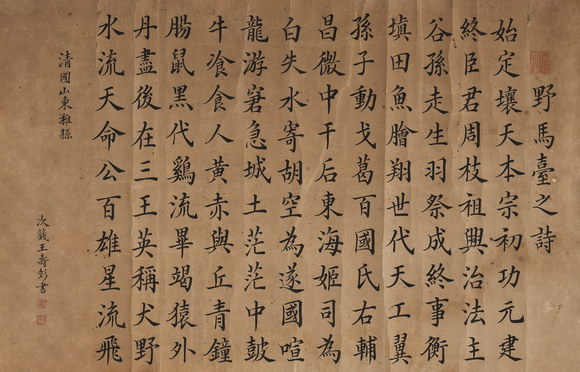 野馬臺之詩
始定壤天本宗初功元建
終臣君周枝祖興治法主
谷孫走生羽祭成終事衡
塡田魚膾翔世代天工翼
孫子動戈葛百國氏右輔
昌微中干后東海姬司為
白失水寄胡空為遂國喧
龍游窘急城土茫茫中皷
牛飡食人黃赤與丘青鐘
腸鼠黑代鷄流畢竭猿外
丹盡後在三王英稱犬野
水流天命公百雄星流飛
清國山東濰縣
次籛王壽彭書